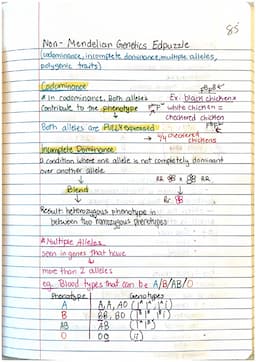 85
Non-Mendelian Genetics Edpuzzle
(codominance, incomplete dominance, multiple alleles,
polygenic traits)
Codominance
* In codominance, Both alleles
contribute to the phenotype
Ex: black chicken x
white chicken =
checkered chicken
Both alleles are fully expressed
→ checkered
chickens
Incomplete Dominance
A condition where one allele is not completely dominant
over another allele
↓
Blend
↓
Result: heterozygous phenotype in
between two homozygous phenotypes
* Multiple Alleles
seen in genes that have
↓
more than 2 alleles
eg. Blood types that can be A/B/AB/O
Phenotype Genotypes
A
B
AB AB
O OO (ii)